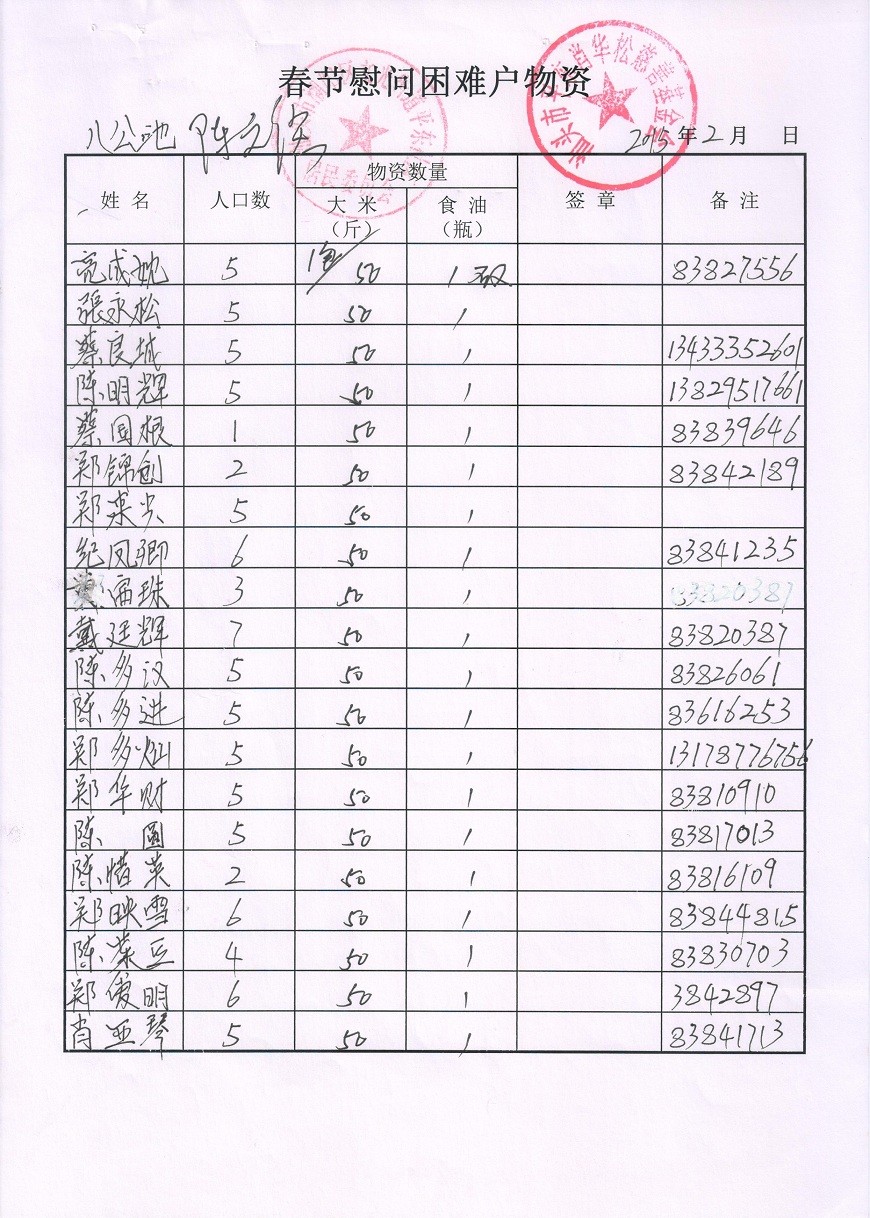 春节慰问困难户物资
八公地 陈
2015年2月 日
姓名 人口数 物资数量 签章 备注
大米（斤） 食油（瓶）
成 5 1包 50 1瓶 83827556
張永松 5 50 1
蔡良城 5 50 1 13433352601
陈明辉 5 50 1 13829517661
蔡国根 1 50 1 83839646
郑锦创 2 50 1 83842189
郑 5 50 1
纪凤卿 6 50 1 83841235
珠 3 50 1 83820387
戴廷辉 7 50 1 83820387
陈多汉 5 50 1 83826061
陈多进 5 50 1 83616253
郑多灿 5 50 1 13178776756
郑华财 5 50 1 83810910
陈 圆 5 50 1 83817013
陈惜英 2 50 1 83816109
郑映雪 6 50 1 83844815
陈菜豆 4 50 1 83830703
郑俊明 6 50 1 3842897
肖亚琴 5 50 1 83841713